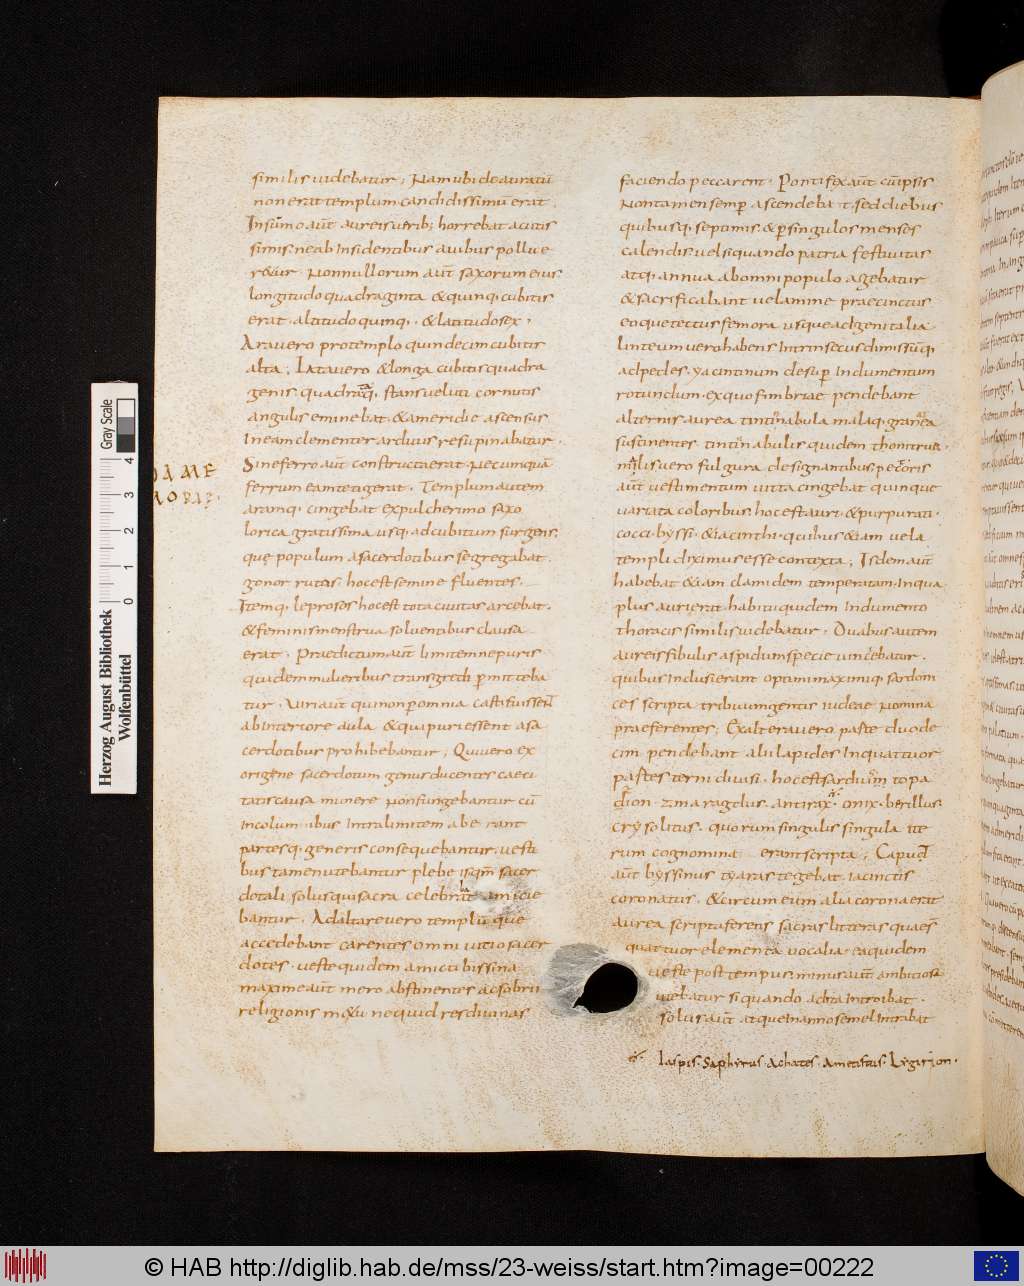 similis uidebatur; Nam ubi deauratū
non erat templum candidissimū erat.
Insūmo aūt aureis uerib; horrebat acutis
simis ne ab insidentibus auibus pollue
retur Nonnullorum aūt saxorum eius
longitudo quadraginta & quinq; cubitis
erat. altitudo quinq;. & latitudo sex.
Ara uero pro templo quindecim cubitis
alta; Lata uero & longa cubitis quadra
genis. quadraq; stans ueluti cornutis
angulis eminebat. & a meridie ascensus
In eam clementer arduus resupinabatur.
Sine ferro aūt constructa erat. Nec umquā
ferrum eam tetigerat. Templum autem
aramq; cingebat ex pulcherimo saxo
lorica gratissima usq; ad cubitum surgens.
quę populum a sacerdotibus segregabat.
gonor rutas. hoc est semine fluentes.
Itemq; leprosos hoc est tota ciuitas arcebat.
& feminis menstrua soluentibus clausa
erat. Praedictum aūt limitem ne puris
quidem mulieribus transgredi ꝑmitteba
tur. Uiri aūt qui non ꝑ omnia casti fuissent
ab interiore aula & qui puri essent a sa
cerdotibus prohibebantur; Qui uero ex
origene sacerdotum genus ducentes caeci
tatis causa munere non fungebantur cū
Incolumibus intra limitem aberant
partesq; generis consequebantur. uesti
bus tamen utebantur plebeiis qm̄ sacer
dotali solus qui sacra celebrabat amicie
bantur. Ad altare uero templūque
accedebant carentes omni uitio sacer
dotes. ueste quidem amicti bissina
maxime aūt mero abstinentes ac sobrii
religionis metu ne quid res diuinas
faciendo peccarent. Pontifex aūt cū ipsis
Non tamen semꝑ ascendebat. sed diebus
quibusq; septimis. & ꝑ singulos menses
calendis. uel si quando patria festiuitas
atq; annua ab omni populo agebatur
& sacrificabant uelamine praecinctus
eoque tectus femora usque ad genitalia
linteum uero habens Intrinsecus dimissūq;
ad pedes. yacintinum desuꝑ Indumentum
rotundum. ex quo fimbriae pendebant
alternis aurea tintinnabula malaq; granea
sustinentes tintinnabulis quidem thonitrua.
malis uero fulgura designantibus pectoris
aūt uestimentum uitta cingebat quinque
uariata coloribus. hoc est auri. & purpurati.
cocci. byssi. & iacinthi. quibus etiam uela
templi diximus esse contexta; Isdem aūt
habebat etiam clamidem temperatam. In qua
plus auri erat habitu quidem Indumento
thoracis similis uidebatur. Duabus autem
aureis fibulis aspidum specie uincebatur.
quibus Inclusi erant optimi maximiq; sardoni
ces scripta tribuum gentis iudeae nomina
praeferentes; Ex altera uero parte duode
cim pendebant alii lapides In quattuor
partes terni diuisi. hoc est sardium topa
dion. zmaragdus. antirax. onix. berillus.
crysolitus. quorum singulis singula ite
rum cognomina erant scripta; Caput
aūt byssinus tyaras tegebat. iacinctis
coronatus. & circum eum alia corona erat
aurea scripta ferens sacras litteras quaes
quattuor elementa uocalia. ea quidem
ueste post tempus. minus aūt ambitiosa
utebatur si quando adita Introibat.
solus aūt atque In anno semel Intrabat
iaspis. Saphyrus. Achates. Ametistus. Lygirion.
© HAB http://diglib.hab.de/mss/23-weiss/start.htm?image=00222
Herzog August Bibliothek
Wolfenbüttel
0 1 2 3 4
Gray Scale